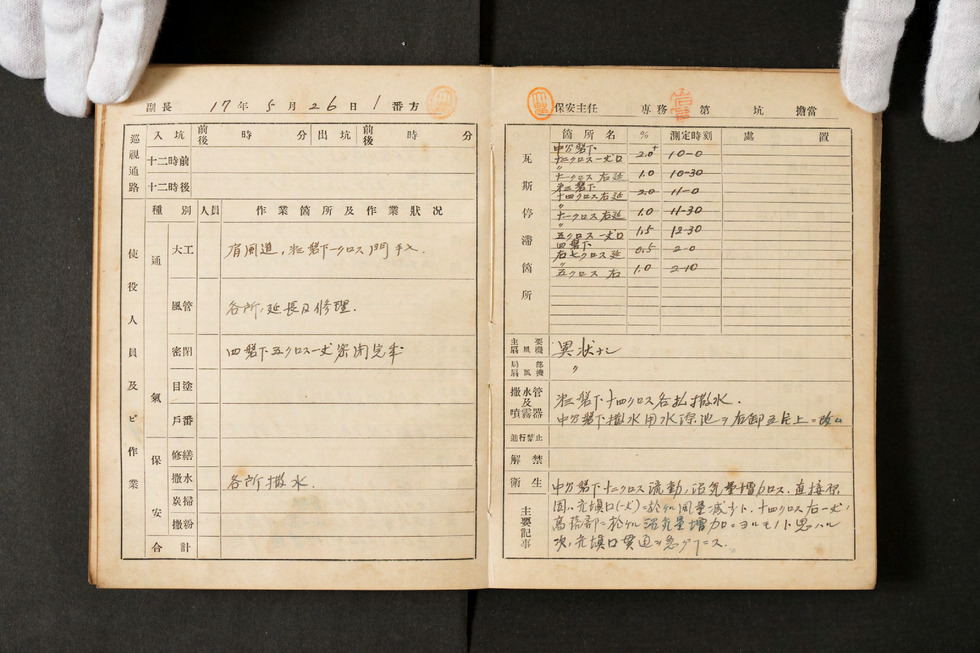 副長 17年5月26日1番方
巡視通路
入坑 前後 時 分 出坑 前後 時 分
十二時前
十二時後
使役人員及ビ作業
種別 人員 作業箇所及作業狀況
通氣
大工 肩風道，粁盤下一クロス門手入．
風管 各所，延長及修理．
密閉 四盤下五クロス一丈密閉完卒
目塗
戶番
保安
修繕
撒水 各所撒水．
炭掃
撒粉
合計
保安主任 専務 第 坑 擔當
瓦斯停滯箇所
箇所名 % 測定時刻 處置
中分盤下
十二クロス一丈口 2.0+ 10-0
〃
十一クロス右延 1.0 10-30
盤下
十四クロス右延 2.0 11-0
〃
十一クロス右延 1.0 11-30
〃
五クロス一丈口 1.5 12-30
四盤下
右七クロス延 0.5 2-0
〃
五クロス右 1.0 2-10
主要扇風機 異狀ナシ
局部扇風機 〃
撒水管及噴霧器
盤下十四クロス各払撒水．
中分盤下撒水用水源池ヲ右卸五片上ニ改ム
進行禁止
解禁
衛生
主要記事
中分盤下十二クロス流動，沼気量増加ロス，直接原
因ハ，充填口(一丈)ニ於ケル風量減少ト，十四クロス右一丈，
高落部ニ於ケル沼気量増加ニヨルモノト思ハル
次，充填口貫通ヲ急グコース．